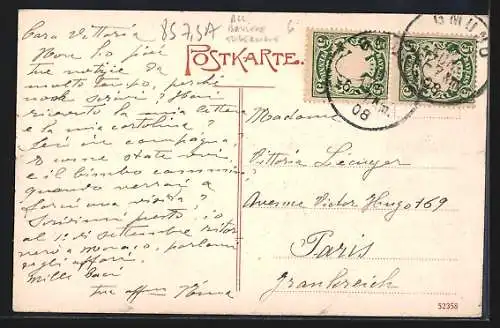 Cara Vittoria
Non ho più
tue notizie da
molto tempo, perché
non scrivi? Hai
ricevuto la mia lettera
e la mia cartolina?
Sei in campagna,
e come state voi
e il bimbo
quando verrai a
farci una visita?
Scrivimi presto, io
al 1° di settembre
a Monaco, parlami
degli affari.
Mille baci
tua aff
85 7,5A
POSTKARTE.
BAYERN
5
BAYERN
5
GMUND
08
08
Madame
Vittoria
Avenue Victor Hugo 169
Paris
Frankreich
52358